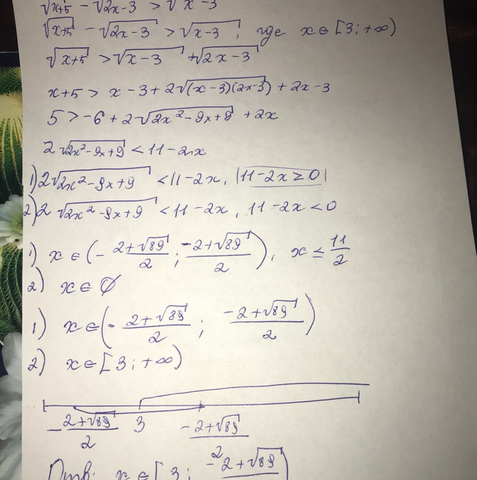 √x+5 - √2x-3 > √x-3
√x+5 - √2x-3 > √x-3, где x∈[3;+∞)
√x+5 > √x-3 + √2x-3
x+5 > x-3+2√(x-3)(2x-3) + 2x-3
5 > -6 + 2√2x²-9x+9 + 2x
2√2x²-9x+9 < 11-2x
1) 2√2x²-9x+9 < 11-2x, |11-2x≥0|
2) 2√2x²-9x+9 < 11-2x, 11-2x<0
1) x∈(- 2+√89/2 ; -2+√89/2), x ≤ 11/2
2) x∈∅
1) x∈(- 2+√89/2 ; -2+√89/2)
2) x∈[3;+∞)
- 2+√89/2 3 -2+√89/2
Отв: x∈[3; -2+√89/2)